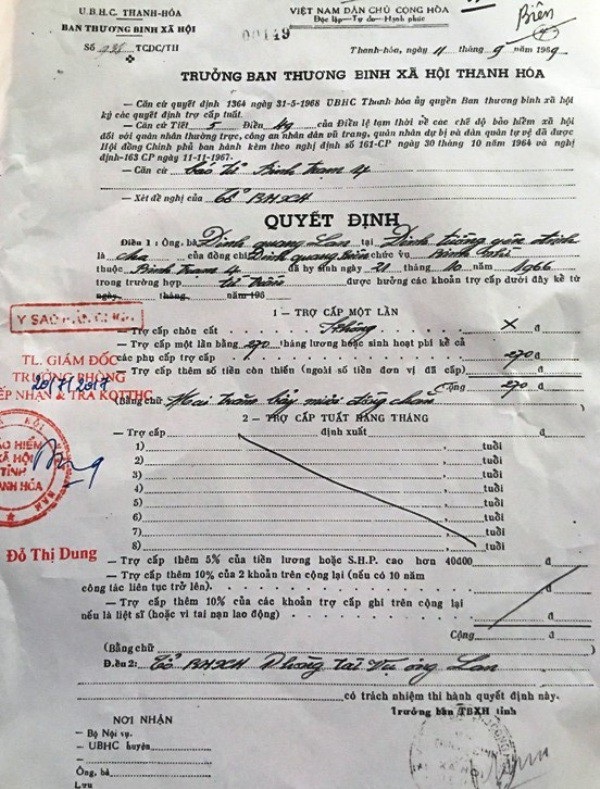 U.B.H.C. THANH-HÓA
BAN THƯƠNG BINH XÃ HỘI
Số TCDC/TH
VIỆT NAM DÂN CHỦ CỘNG HÒA
Độc lập — Tự do — Hạnh phúc
Biên
00149
Thanh-hóa, ngày 11 tháng 9 năm 1969
TRƯỞNG BAN THƯƠNG BINH XÃ HỘI THANH HÓA
— Căn cứ quyết định 1364 ngày 31-5-1968 UBHC Thanh hóa ủy quyền Ban thương binh xã hội
ký các quyết định trợ cấp tuất.
— Căn cứ Tiết 5 Điều 49 của Điều lệ tạm thời về các chế độ bảo hiểm xã hội
đối với quân nhân thường trực, công an nhân dân vũ trang, quân nhân dự bị và dân quân tự vệ đã được
Hội đồng Chính phủ ban hành kèm theo nghị định số 161-CP ngày 30 tháng 10 năm 1964 và nghị
định-163 CP ngày 11-11-1967.
— Căn cứ báo tử Binh trạm 4
— Xét đề nghị của tổ BHXH
QUYẾT ĐỊNH
Điều 1 : Ông, bà Đinh quang Lan tại Định tường yên định
là cha của đồng chí Đinh quang Biên chức vụ Binh nhì
thuộc Binh Trạm 4 đã hy sinh ngày 21 tháng 10 năm 1966
trong trường hợp tử trận được hưởng các khoản trợ cấp dưới đây kể từ
ngày tháng năm 196
1 — TRỢ CẤP MỘT LẦN
— Trợ cấp chôn cất không X đ
— Trợ cấp một lần bằng 270 tháng lương hoặc sinh hoạt phí kể cả
các phụ cấp trợ cấp 270 đ
— Trợ cấp thêm số tiền còn thiếu (ngoài số tiền đơn vị đã cấp) đ
Cộng 270 đ
(Bằng chữ Hai trăm bảy mươi đồng chẵn)
2 — TRỢ CẤP TUẤT HÀNG THÁNG
— Trợ cấp định xuất đ
1) tuổi
2) tuổi
3) tuổi
4) tuổi
5) tuổi
6) tuổi
7) tuổi
8) tuổi
— Trợ cấp thêm 5% của tiền lương hoặc S.H.P. cao hơn 40đ00 đ
— Trợ cấp thêm 10% của 2 khoản trên cộng lại (nếu có 10 năm
công tác liên tục trở lên).
— Trợ cấp thêm 10% của các khoản trợ cấp ghi trên cộng lại
nếu là liệt sĩ (hoặc vì tai nạn lao động)
Cộng đ
(Bằng chữ )
Điều 2: Tổ BHXH Phòng tài vụ ông Lan
có trách nhiệm thi hành quyết định này.
Trưởng ban TBXH tỉnh
NƠI NHẬN
— Bộ Nội vụ.
— UBHC huyện
—
Ông, bà
Lưu
Y SAO
TL. GIÁM ĐỐC
TRƯỞNG PHÒNG
20/7/2017
TIẾP NHẬN & TRẢ KQTTHC
BẢO HIỂM
XÃ HỘI
TỈNH
THANH HÓA
Đỗ Thị Dung